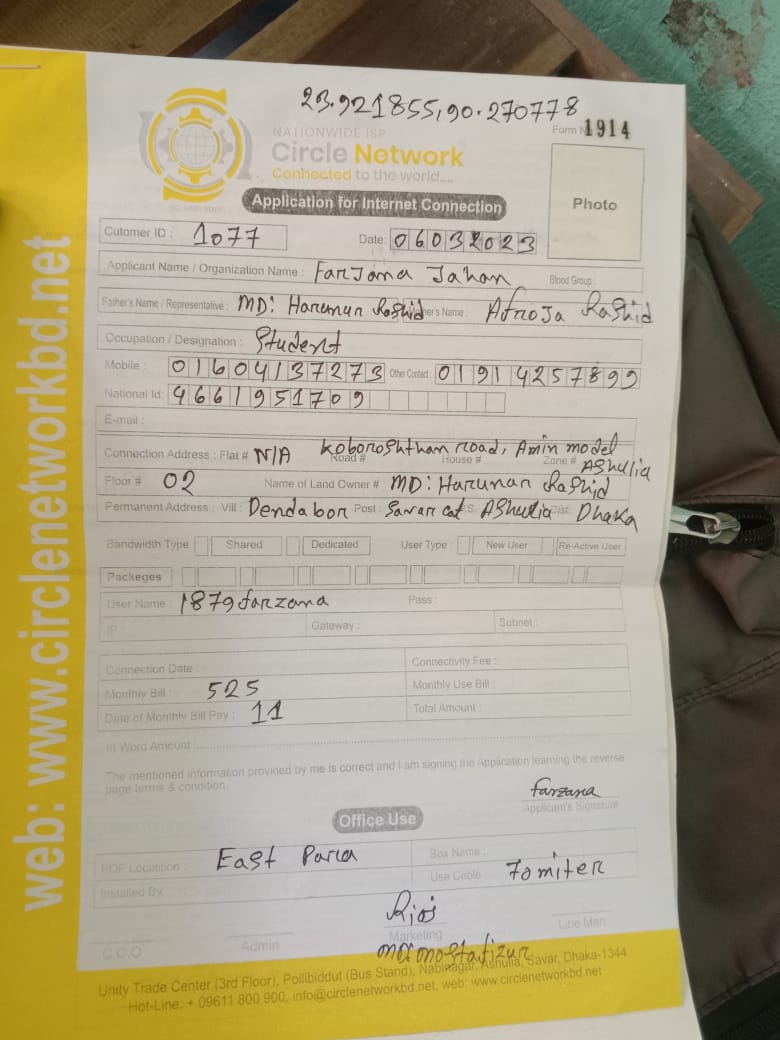 23.921855,90.270778
Form N 1914
NATIONWIDE ISP
Circle Network
Connected to the world....
Photo
Application for Internet Connection
Cutomer ID : 1077 Date: 06032023
Applicant Name / Organization Name : Farjana Jahan Blood Group :
Father's Name / Representative : MD: Harunur Rashid her's Name : Afroja Rashid
Occupation / Designation : Student
Mobile : 01604137273 Other Contact : 01914257899
National Id: 4661951709
E-mail :
Connection Address : Flat # N/A Road # koboroshthan road, Amin model House # Zone # AShulia
Floor # 02 Name of Land Owner # MD: Harunan Rashid
Permanent Address : Vill : Dendabor Post : Savar cat S. AShulia Dist: Dhaka
Bandwidth Type Shared Dedicated User Type : New User Re-Active User
Packeges
User Name : 1879farzana Pass :
IP : Gateway : Subnet :
Connection Date : Connectivity Fee :
Monthly Bill : 525 Monthly Use Bill :
Date of Monthly Bill Pay : 11 Total Amount :
In Word Amount :
The mentioned information provided by me is correct and I am signing the Application learning the reverse
page terms & condition.
farzana
Applicant's Signature
Office Use
POP Locatition : East Para Box Name :
Installed By : Use Cable : 70miter
Riaj
C.O.O Admin Marketing Line Man
MD: mostafizur
Unity Trade Center (3rd Floor), Pollibiddut (Bus Stand), Nabinagar, Ashulia, Savar, Dhaka-1344
Hot-Line: + 09611 800 900, info@circlenetworkbd.net, web: www.circlenetworkbd.net
web: www.circlenetworkbd.net